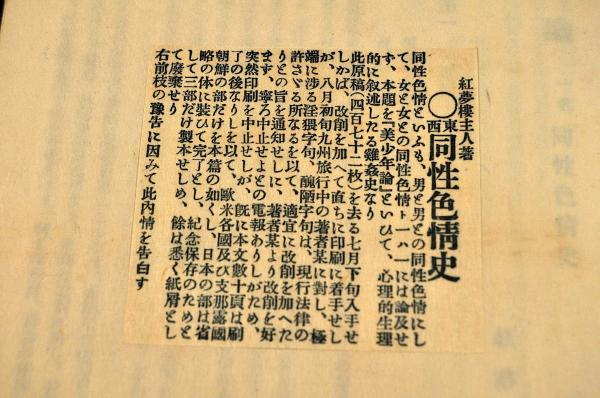 紅夢樓主人著
○東西同性色情史
同性色情といふも、男と男との同性色情にし
て、女と女との同性色情トーハーには論及せ
ず、本題を『美少年論』といひて、心理的生理
的に叙述したる雞姦史なり
此原稿(四百七十二枚)を去る七月下旬入手せ
しかば、改削を加へて直ちに印刷に着手せし
が、八月初旬九州旅行中の著者某に對し、極
端に渉る淫猥字句、醜陋字句は、現行法律の
許さゞる所なるを以て、適宜に改削を加へた
りとの旨を通知せしに、著者某より改削を好
まず、寧ろ中止せよとの電報ありしがため、
突然印刷を中止せしが、既に本文數十頁は刷
了の後なりしを以て、歐米各國及び支那露國
朝鮮の部だけを本篇の如くし、日本の部は省
略の体に裝ひて完了とし、紀念保存のためと
して三部だけ製本せしめ、餘は悉く紙屑とし
て廢棄せり
右前枝の豫告に因みて此内情を告白す